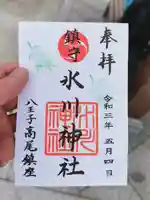 奉拝
令和三年五月四日
鎮守
氷川神社
八王子高尾鎮座